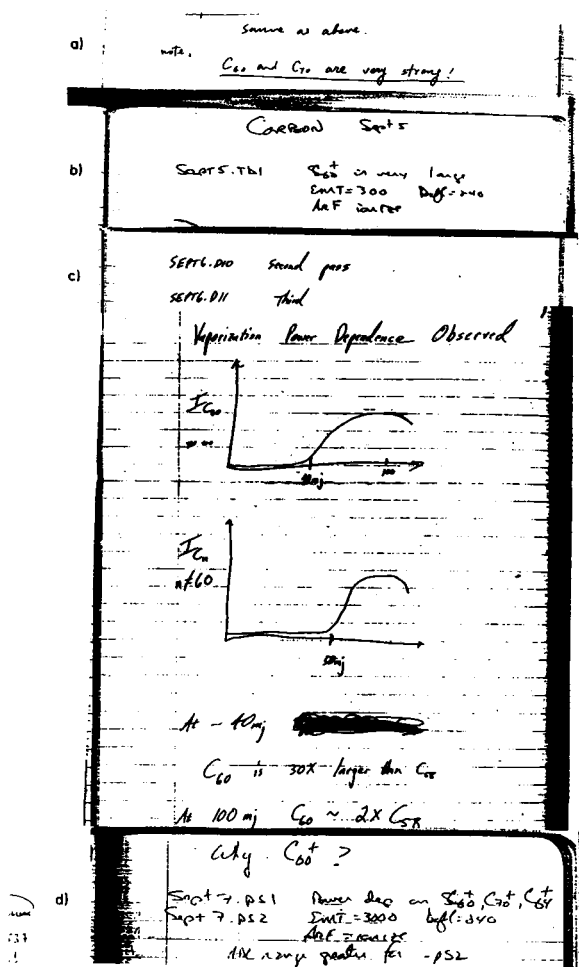 same as above.
a)
note,
C60 and C70 are very strong!
CARBON Sept 5
b)
SEPT5.TD1 C60+ is very large
EMT=300 Defl=240
ArF ionize
c)
SEPT6.D10 Second pass
SEPT6.D11 Third
Vaporization Power Dependence Observed
IC60
40mj 100
ICn
n≠60
50mj
At ~ 40mj
C60 is 30X larger than C58
At 100 mj C60 ~ 2X C58
Why C60+ ?
d)
Sept 7.PS1 Power dep on C60+, C70+, C84+
Sept 7.PS2 EMT=3000 Defl=240
ArF ionize
range greater for -PS2